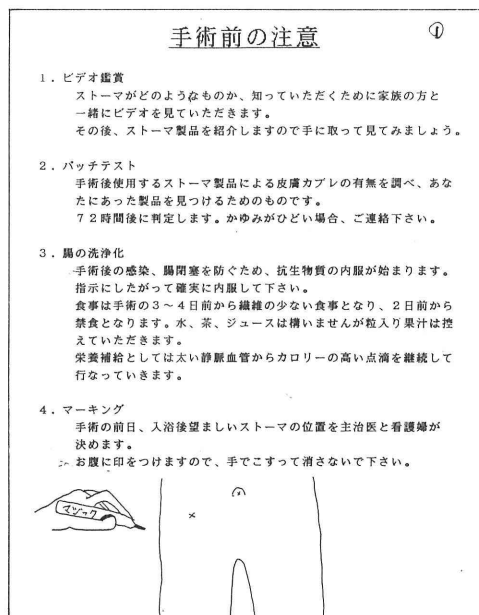 手術前の注意
①
1．ビデオ鑑賞
ストーマがどのようなものか、知っていただくために家族の方と
一緒にビデオを見ていただきます。
その後、ストーマ製品を紹介しますので手に取って見てみましょう。
2．パッチテスト
手術後使用するストーマ製品による皮膚カブレの有無を調べ、あな
たにあった製品を見つけるためのものです。
72時間後に判定します。かゆみがひどい場合、ご連絡下さい。
3．腸の洗浄化
手術後の感染、腸閉塞を防ぐため、抗生物質の内服が始まります。
指示にしたがって確実に内服して下さい。
食事は手術の3～4日前から繊維の少ない食事となり、2日前から
禁食となります。水、茶、ジュースは構いませんが粒入り果汁は控
えていただきます。
栄養補給としては太い静脈血管からカロリーの高い点滴を継続して
行なっていきます。
4．マーキング
手術の前日、入浴後望ましいストーマの位置を主治医と看護婦が
決めます。
お腹に印をつけますので、手でこすって消さないで下さい。
マジック